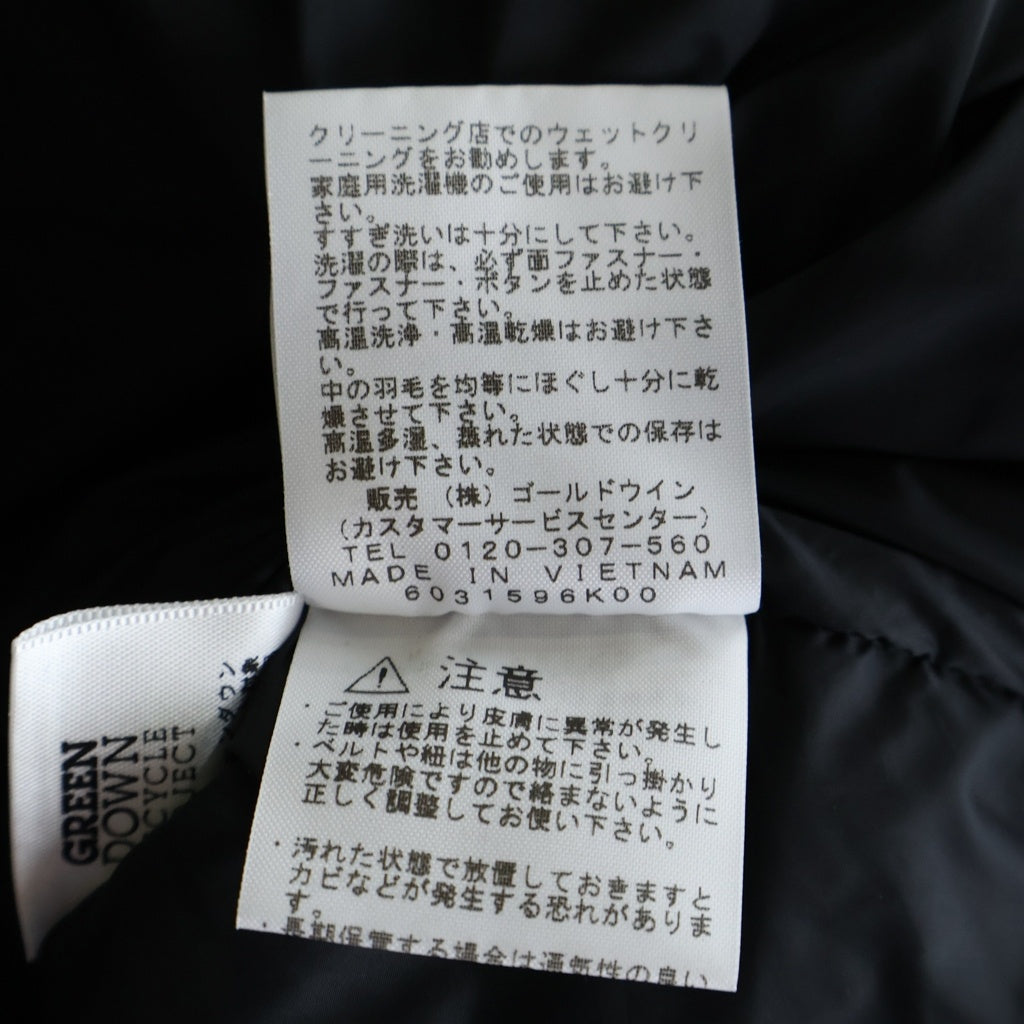 クリーニング店でのウェットクリ
ーニングをお勧めします。
家庭用洗濯機のご使用はお避け下
さい。
すすぎ洗いは十分にして下さい。
洗濯の際は、必ず面ファスナー・
ファスナー・ボタンを止めた状態
で行って下さい。
高温洗浄・高温乾燥はお避け下さ
い。
中の羽毛を均等にほぐし十分に乾
燥させて下さい。
高温多湿、蒸れた状態での保存は
お避け下さい。
販売 (株) ゴールドウイン
(カスタマーサービスセンター)
TEL 0120-307-560
MADE IN VIETNAM
6031596K00
⚠ 注意
・ご使用により皮膚に異常が発生し
た時は使用を止めて下さい。
・ベルトや紐は他の物に引っ掛かり
大変危険ですので絡まないように
正しく調整してお使い下さい。
・汚れた状態で放置しておきますと
カビなどが発生する恐れがありま
す。
・長期保管する場合は通気性の良い
GREEN
DOWN
ECYCLE
JECT
ダウン